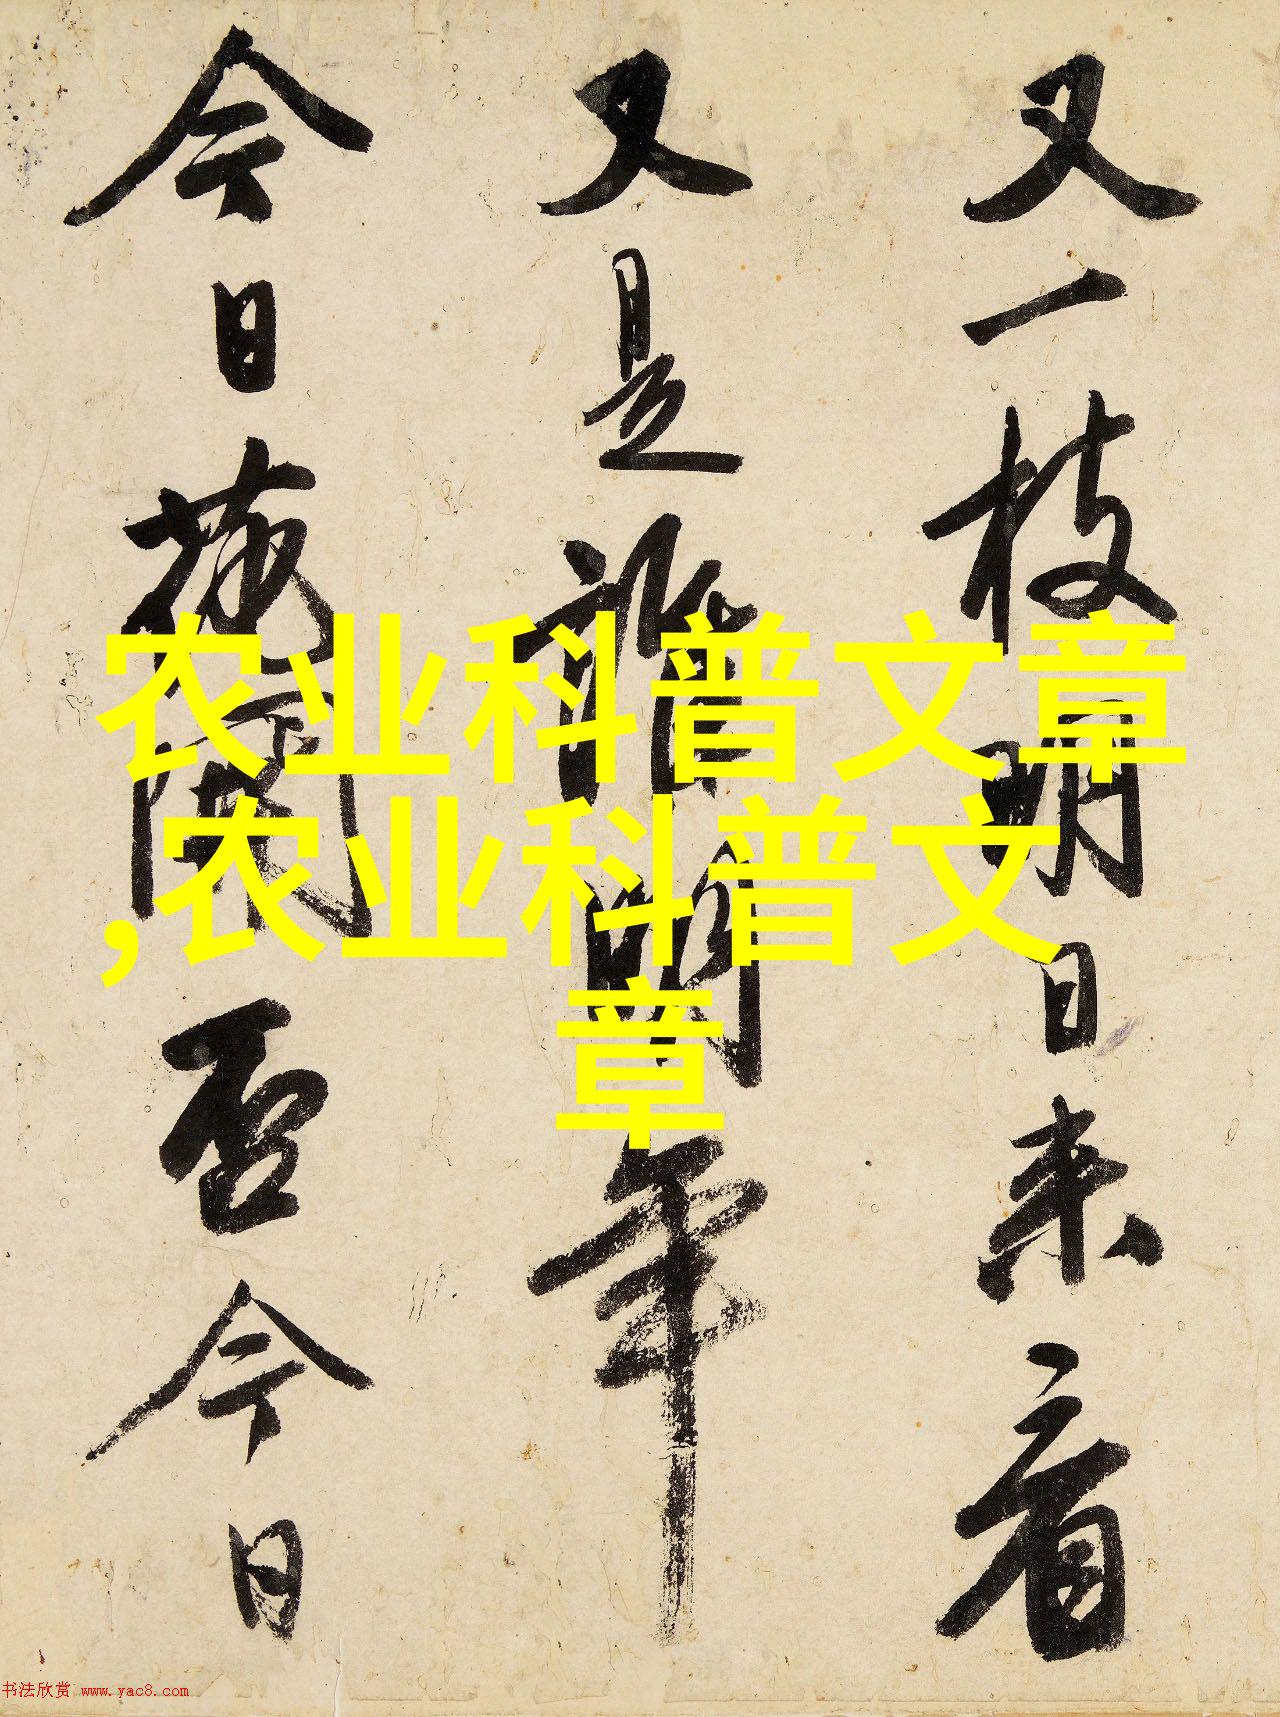 又一枝明日来看
又是谁明年
今日花开否今日
农业科普文章
,农业科普文
章
书法欣赏 www.yac8.com